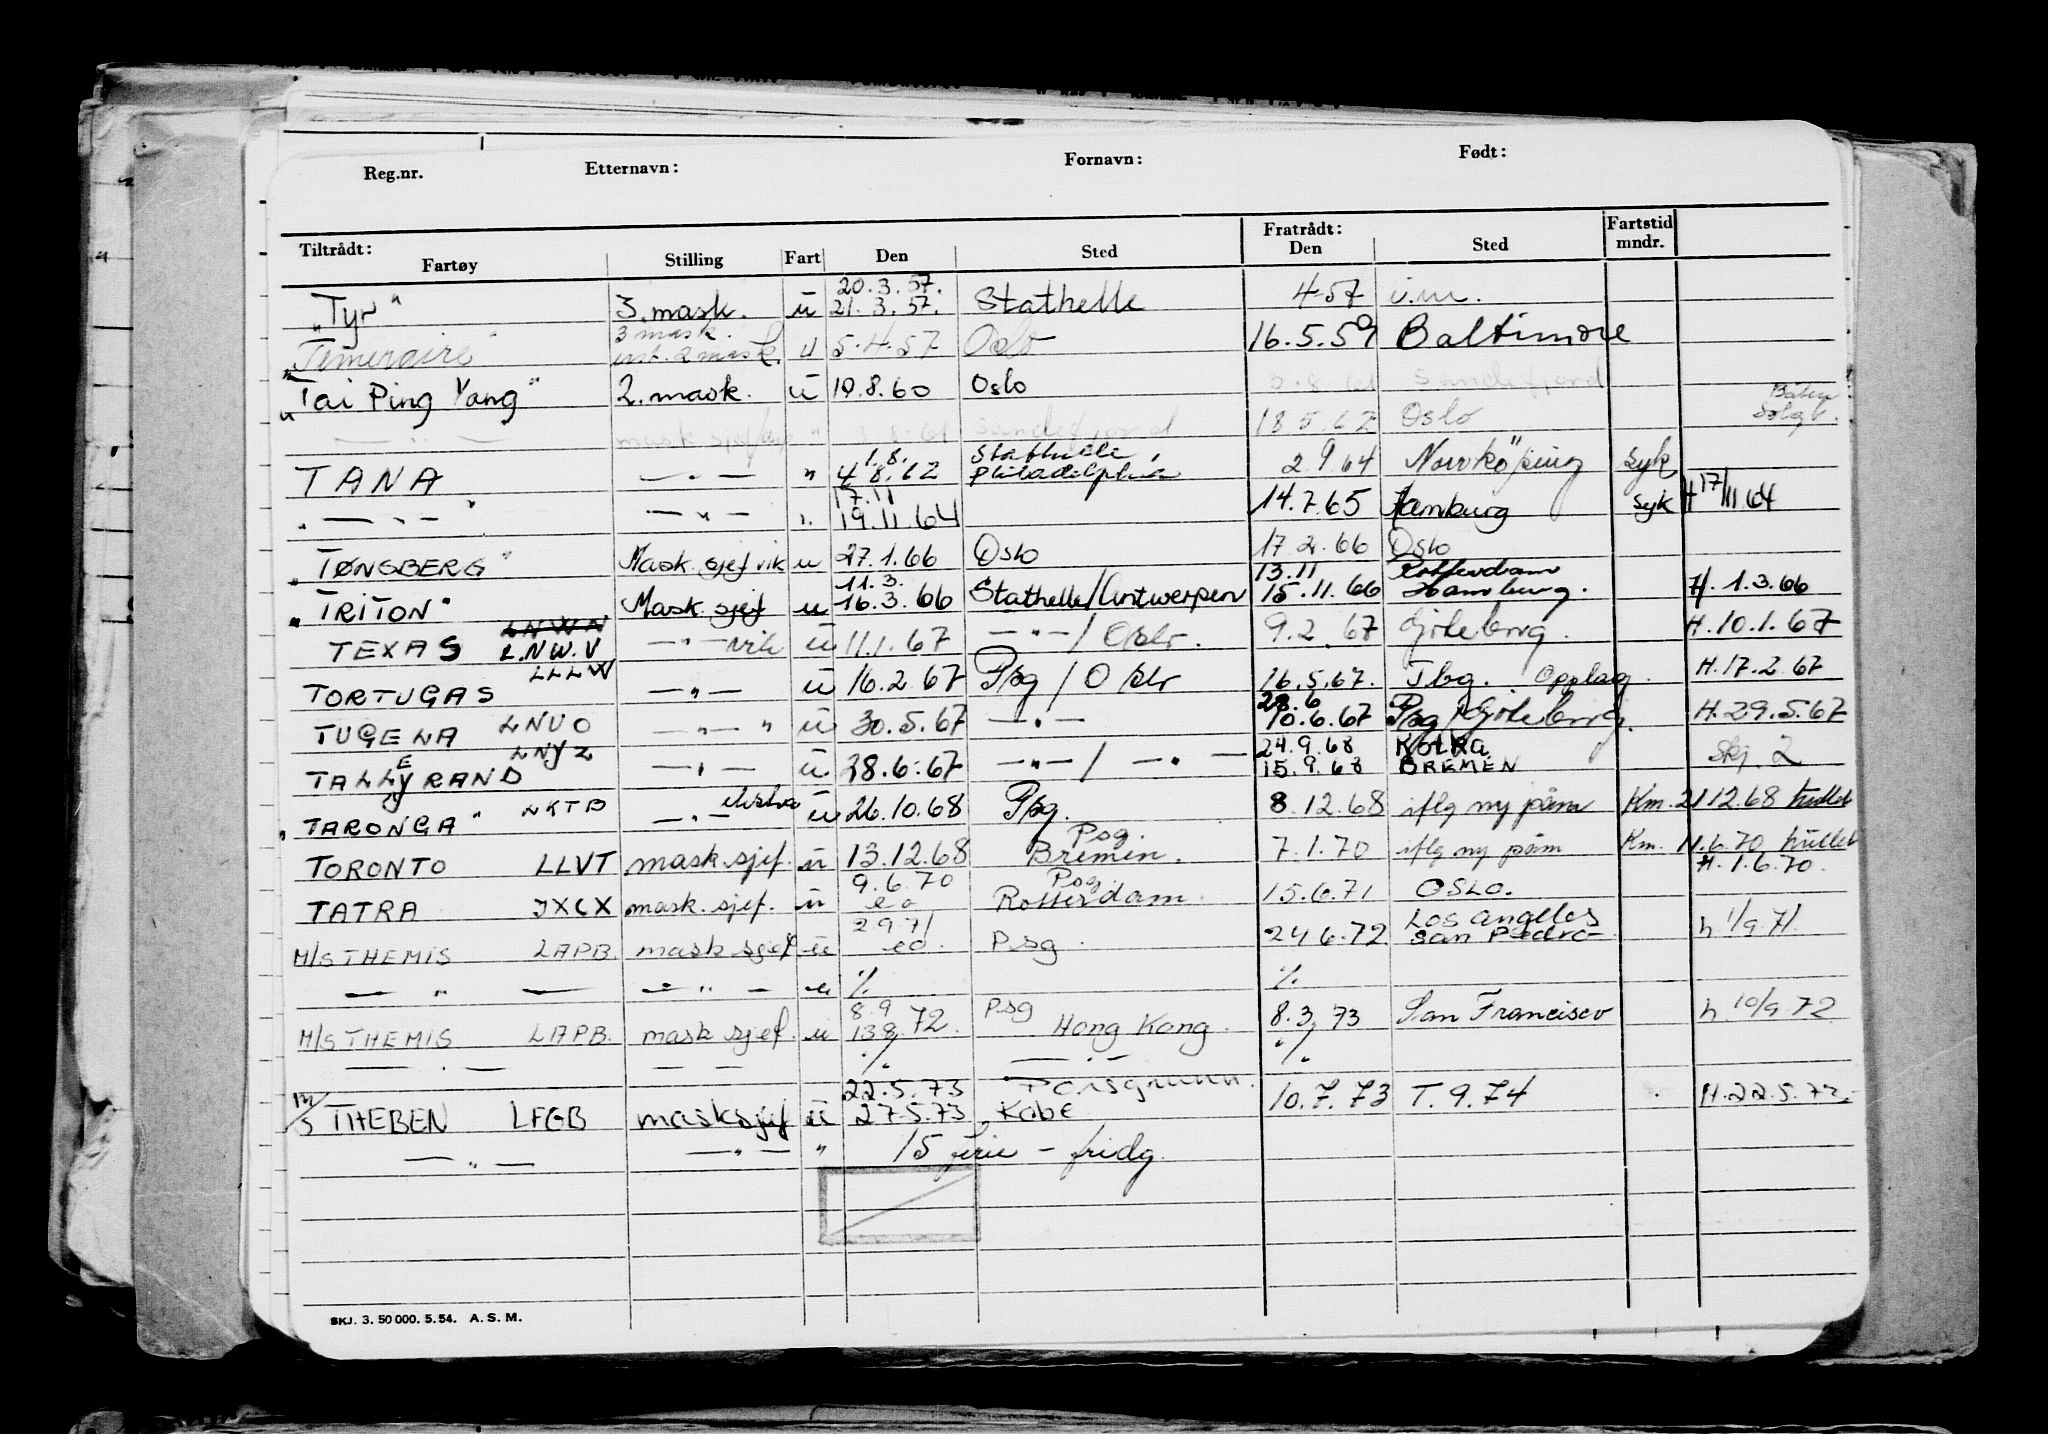 Reg.nr. Etternavn: Fornavn: Født:
Tiltrådt: Fratrådt: Fartstid
Fartøy Stilling Fart Den Sted Den Sted mndr.
20.3.57.
"Tyr" 3. mask. u 21.3.57. Stathelle 4-57 u.m.
3 mask.
"Temeraire" 2 mask. u 5.4.57 Oslo 16.5.59 Baltimore
"Tai Ping Yang" 2. mask. u 19.8.60 Oslo 3.8.61 Sandefjord
Båten
— " — mask sjef " 3.8.61 Sandefjord 18.5.62 Oslo Solgt.
1.8. Stathelle
TANA — " — " 4.8.62 Philadelphia 2.9.64 Norrköping syk
17.11
" — " — " — " — " 19.11.64 14.7.65 Hamburg syk H 17/11 64
"TØNSBERG" Mask. sjef vik u 27.1.66 Oslo 17.2.66 Oslo
11.3. 13.11 Rotterdam
"TRITON" Mask. sjef u 16.3.66 Stathelle/Antwerpen 15.11.66 Hamburg. H. 1.3.66
LNWN
TEXAS L.NW.V — " — vik u 11.1.67 — " — / Oslo. 9.2.67 Göteborg. H. 10.1.67
LLLW
TORTUGAS — " — u 16.2.67 Psg / Oslo 16.5.67. Tbg. Opplag. H. 17.2.67
28.6
TUGELA LNUO — " — " u 30.5.67 — " — 10.6.67 Psg/Göteborg. H. 29.5.67
LNYZ 24.9.68 Kotka
TALLEYRAND — " — u 28.6.67 — " — / — " — 15.9.68 BREMEN Skj. 2
"TARONGA" LKTB — " — ekstra u 26.10.68 Psg. 8.12.68 iflg ny påm Km. 21.12.68 hullet
Psg.
TORONTO LLVT mask sjef. u 13.12.68 Bremen. 7.1.70 iflg ny påm Km. 11.6.70 hullet
9.6.70 Psg. H. 1.6.70.
TATRA JXCX mask. sjef. u eo Rotterdam. 15.6.71 OSLO.
2971 Los Angeles
M/S THEMIS LAPB. mask sjef u eo. Psg. 24.6.72 San Pedro h 1/9 71.
— " — — " — u % %
8.9 Psg
M/S THEMIS LAPB. mask sjef. u 13.8.72. Hong Kong. 8.3.73 San Francisco h. 10/9.72
— . — — — % — " — %
22.5.73 Porsgrunn.
M/S THEBEN LFGB masksjef u 27.5.73 Kobe 10.7.73 T. 9.74 H. 22.5.73.
— " — — " — " 15 ferie - fridg.
SKJ. 3. 50 000. 5. 54. A. S. M.